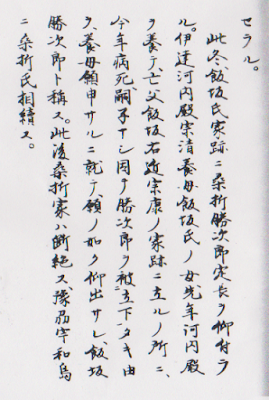 セラル。
此冬飯坂氏家跡ニ桑折勝次郎定長ヲ仰付ラ
ル。伊達河内殿宗清養母飯坂氏ノ女先年河内殿
ヲ養テ亡父飯坂右近宗康ノ家跡ニ立ルノ所ニ、
今年病死嗣子ナシ因テ勝次郎ヲ被立下タキ由
ヲ養母願申サルニ就テ、願ノ如ク仰出サレ飯坂
勝次郎ト稱ス。此後桑折家ハ断絶ス豫州宇和島
ニ桑折氏相續ス。